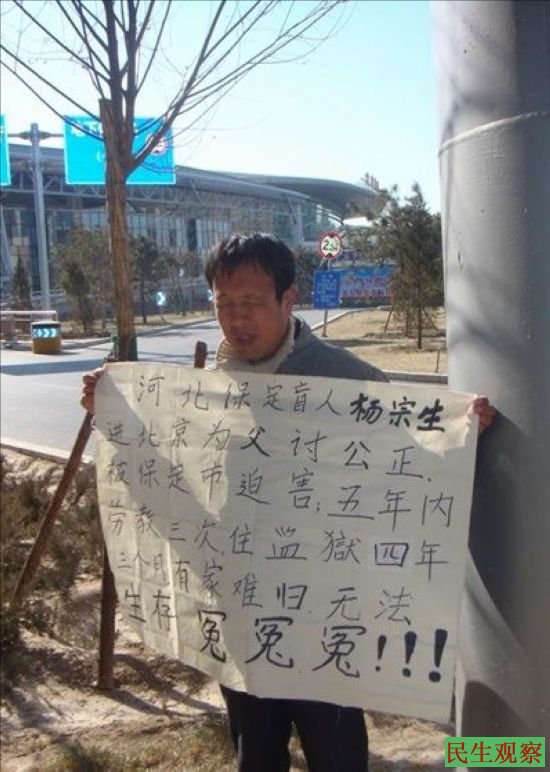 河北保定盲人杨宗生
进北京为父讨公正.
被保定市迫害;五年内
劳教三次.住监獄四年
三个月有家难归.无法
生存冤冤冤!!!
民生观察